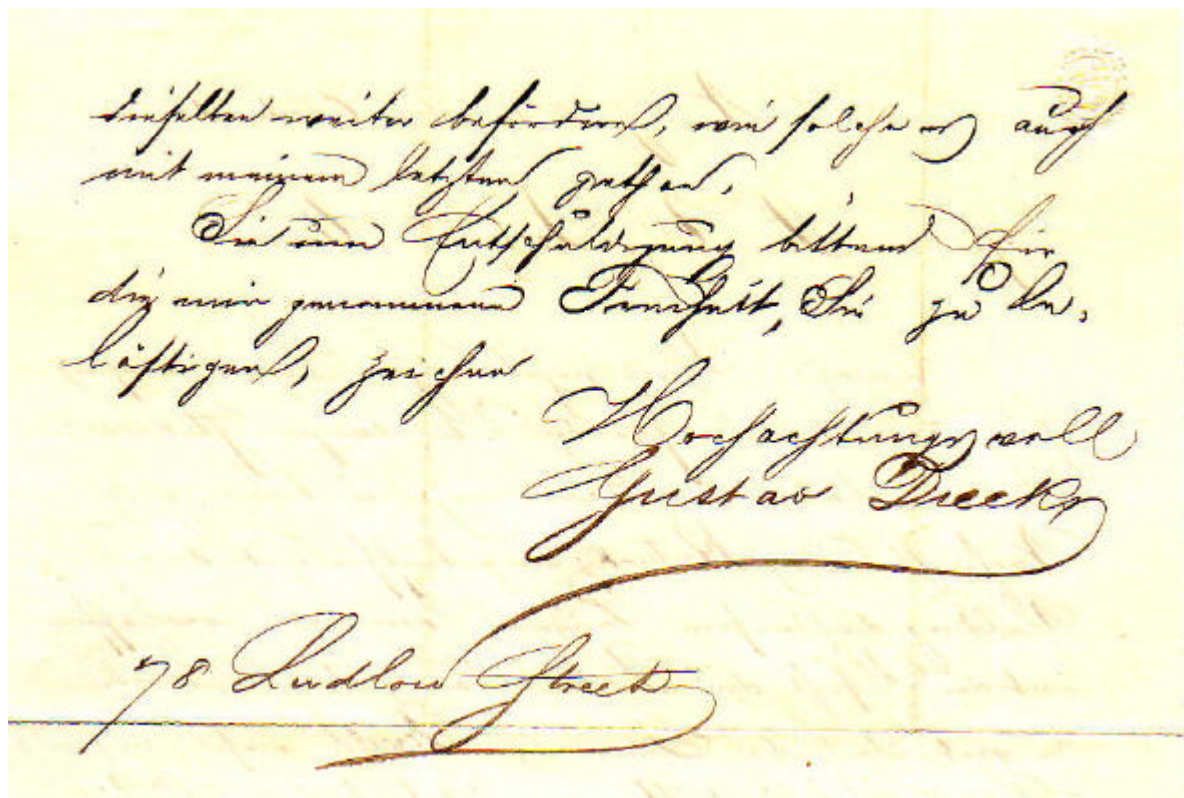 dieselben weiter befördern, wie solches auch
mit meinem letzten gethan.
Sie um Entschuldigung bittend für
die mir genommene Freiheit, Sie zu be-
lästigen, zeichne
Hochachtungsvoll
Gustav Dieck
78 Ludlow Street